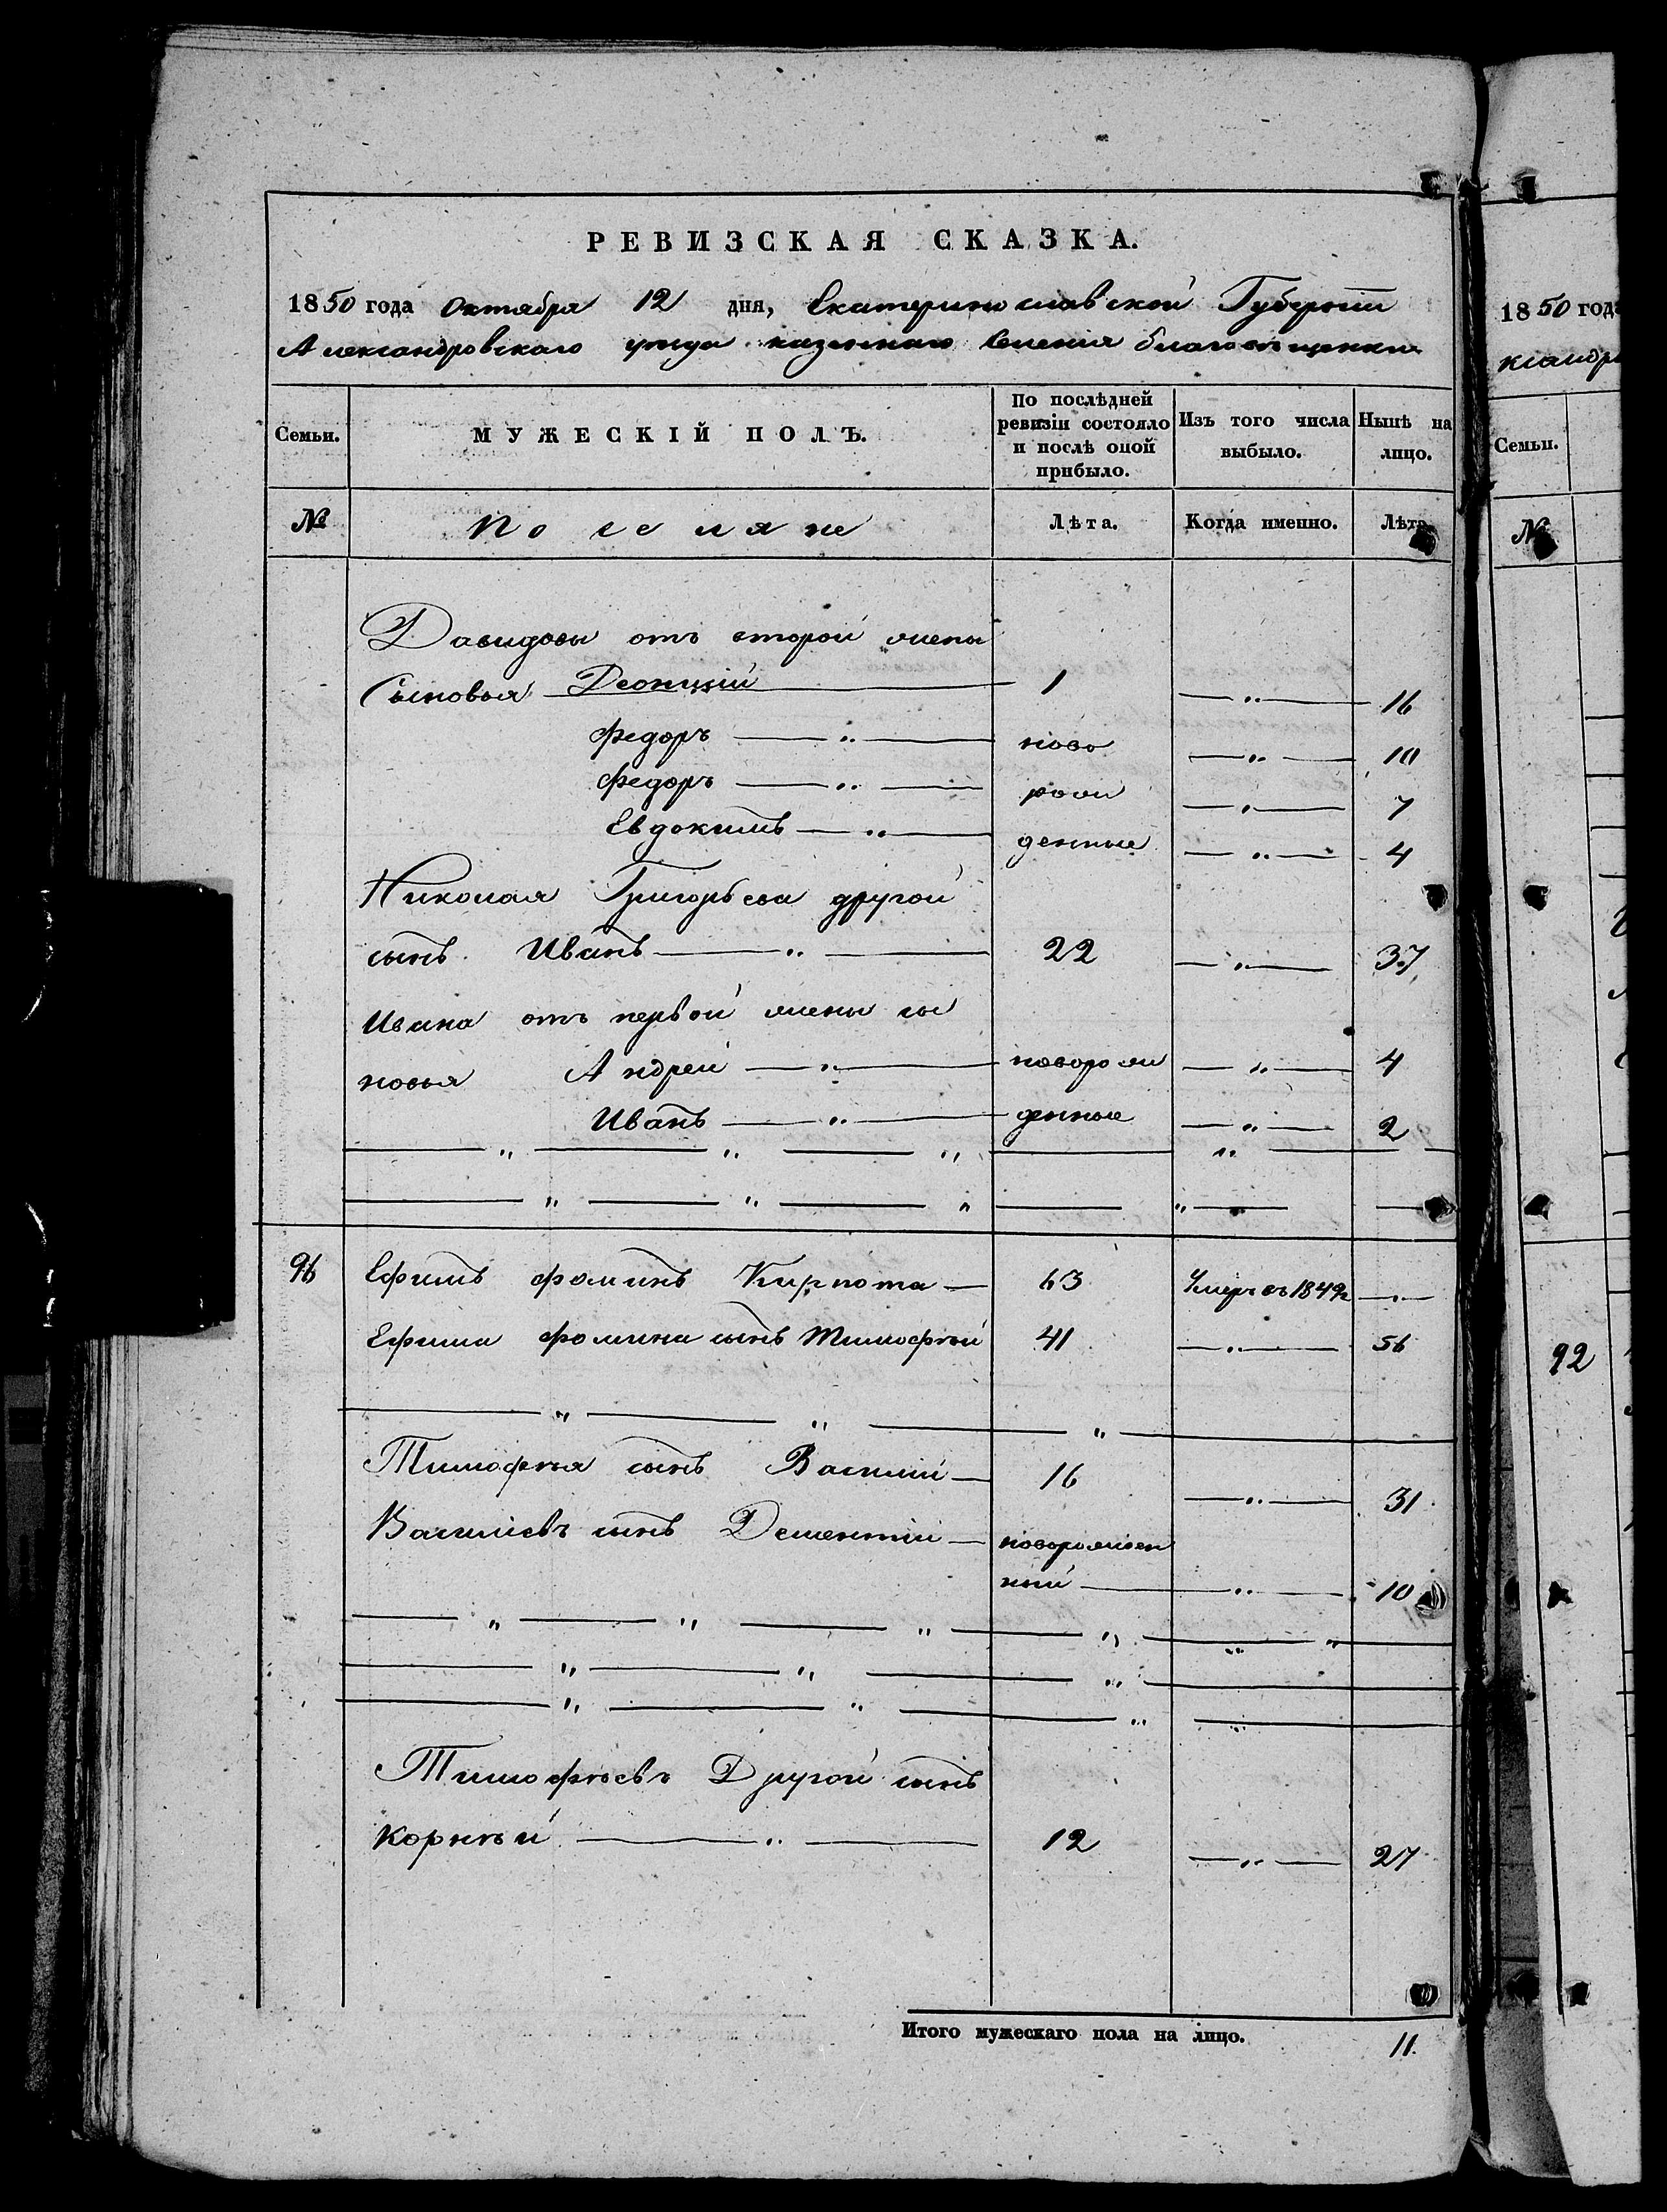 РЕВИЗСКАЯ СКАЗКА.
1850 года Октября 12 дня, Екатеринославской Губерніи
Александровскаго уѣзда казеннаго Селенія
Семьи. МУЖЕСКІЙ ПОЛЪ. По послѣдней ревизіи состояло и послѣ оной прибыло. Изъ того числа выбыло. Нынѣ на лицо.
№ Поселяне Лѣта. Когда именно. Лѣта
Давидовы отъ второй жены
Сыновья 1 — " — 16
Федоръ — " — ново — " — 10
Федоръ — " — рож — " — 7
Евдокимъ — " — денные — " — 4
Николая Григорьева другой
сынъ Иванъ — " — 22 — " — 37
Ивана отъ первой жены сы
новья Андрей — " — новорож — " — 4
Иванъ — " — денные — " — 2
— " — " — " — " —
— " — " — " — " —
96 Ефимъ Фоминъ Кирпота — 63 Умеръ въ 1849г — " —
Ефима Фомина сынъ Тимофѣй 41 — " — 56
— " — " — " —
Тимофѣя сынъ Василій — 16 — " — 31
Васильевъ сынъ Дементій — новорожден
ный — " — 10
— " — " — " — " — " — " —
— " — " — " —
— " — " — " — " —
Тимофѣевъ Другой сынъ
Корнѣй — " — 12 — " — 27
Итого мужескаго пола на лицо. 11.
1850 года
Семьи.
№
92